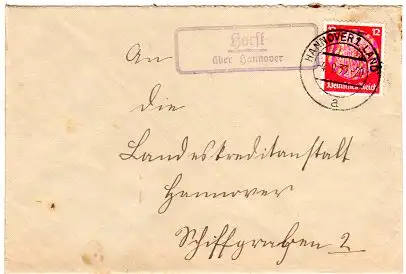 Horst
über Hannover
12
HANNOVER 1 LAND
a
Deutsches Reich
An
die
Landeskreditanstalt
Hannover
Schiffgraben 2